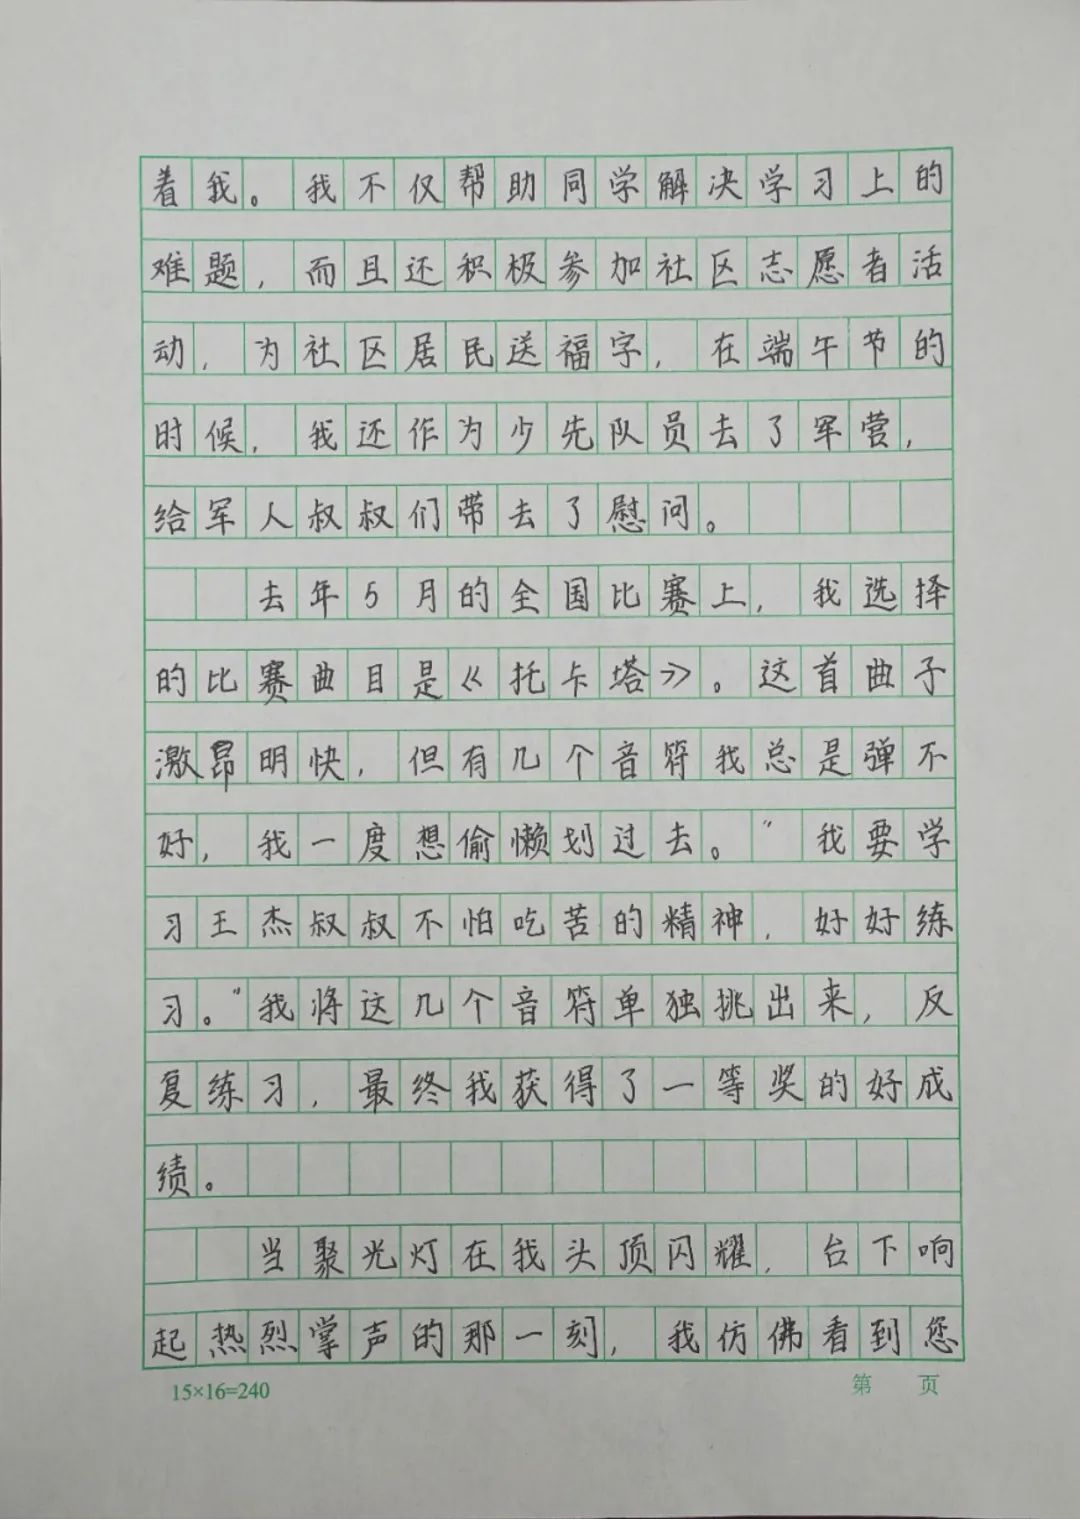 着我。我不仅帮助同学解决学习上的
难题，而且还积极参加社区志愿者活
动，为社区居民送福字，在端午节的
时候，我还作为少先队员去了军营，
给军人叔叔们带去了慰问。
去年5月的全国比赛上，我选择
的比赛曲目是《托卡塔》。这首曲子
激昂明快，但有几个音符我总是弹不
好，我一度想偷懒划过去。“我要学
习王杰叔叔不怕吃苦的精神，好好练
习。”我将这几个音符单独挑出来，反
复练习，最终我获得了一等奖的好成
绩。
当聚光灯在我头顶闪耀，台下响
起热烈掌声的那一刻，我仿佛看到您
15×16=240 第 页